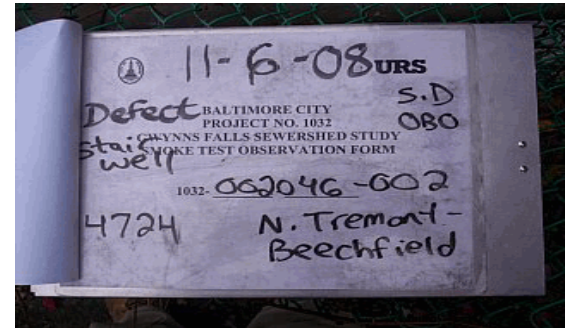 11-6-08 URS
S.D
Defect BALTIMORE CITY
PROJECT NO. 1032 OBO
GWYNNS FALLS SEWERSHED STUDY
stair SMOKE TEST OBSERVATION FORM
well
1032- 002046-002
4724 N. Tremont-
Beechfield